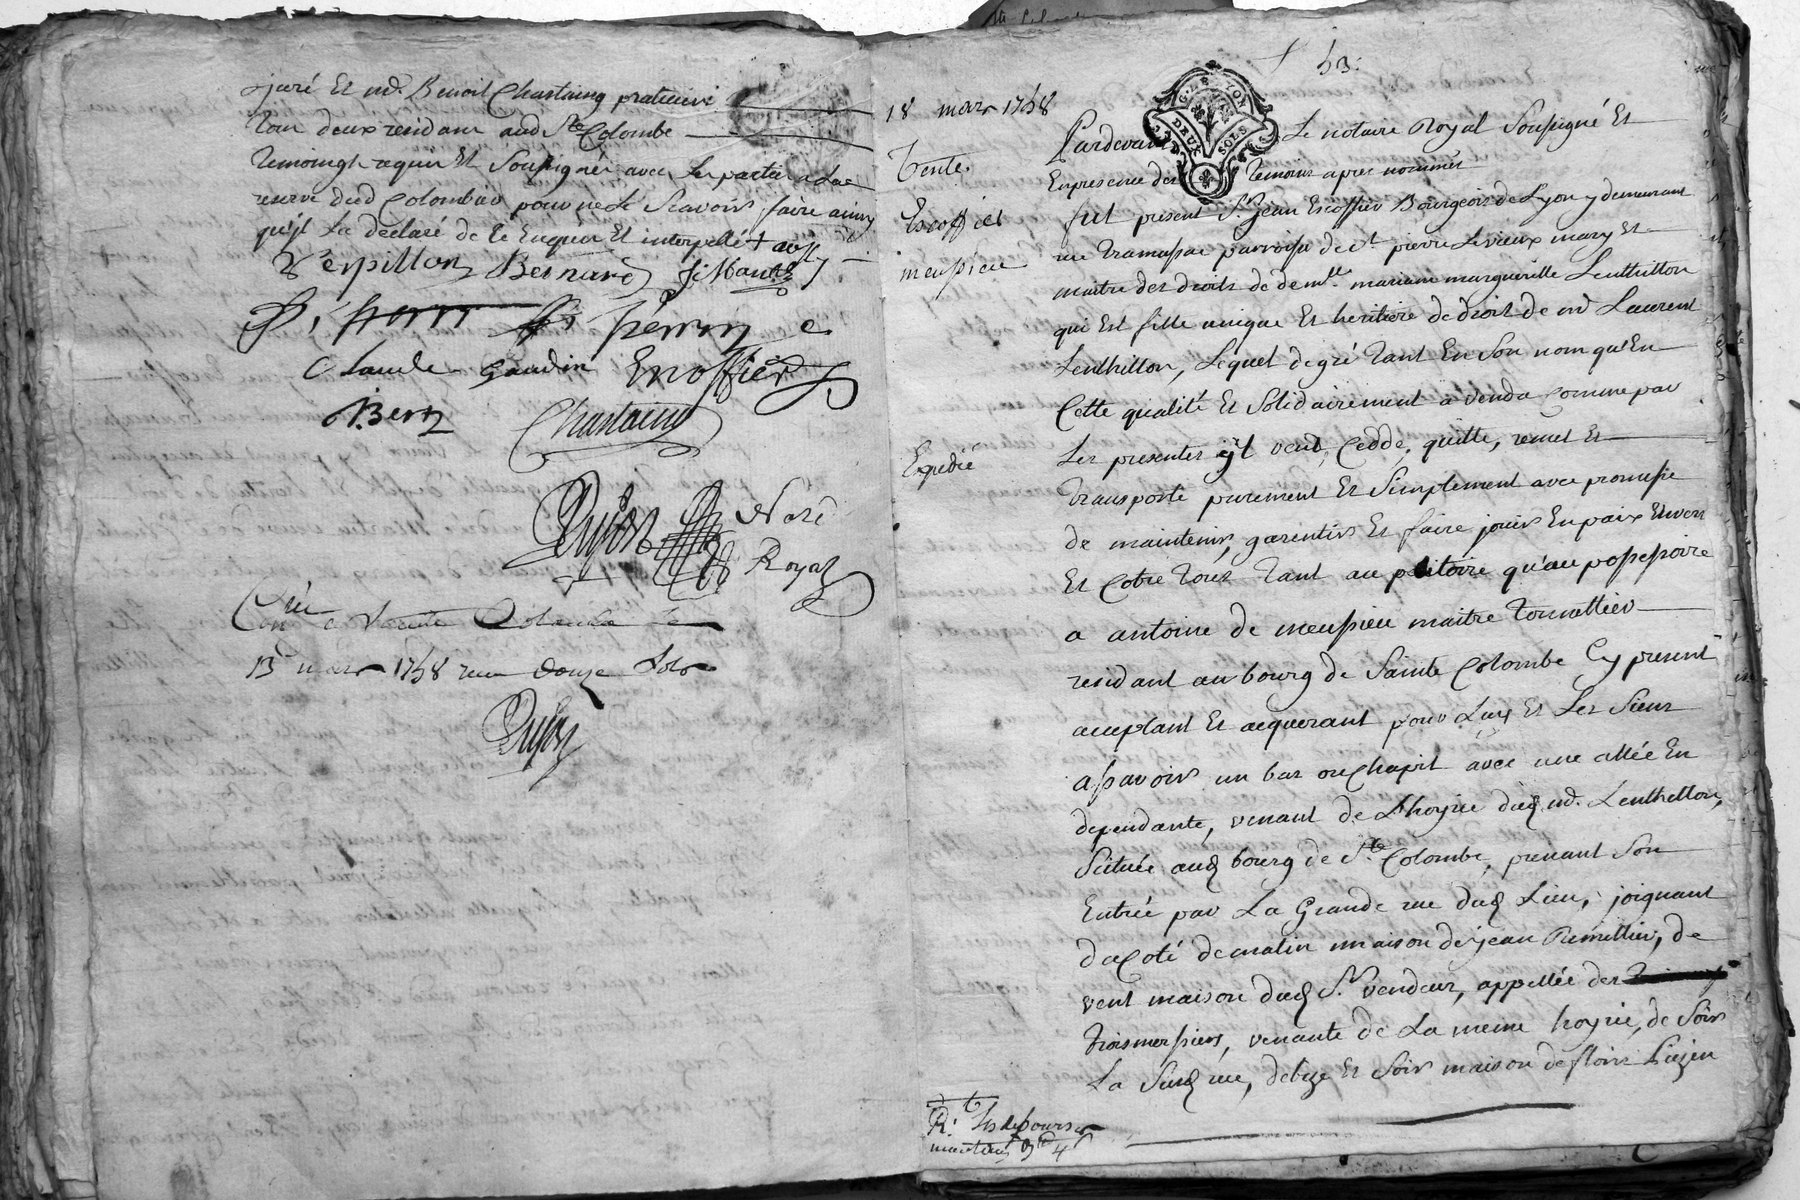 juré Et md. Benoit Chastaing praticien
tous deux residans aud Ste Colombe
temoings requis Et Soussignés avec Les parties a La
reserve dud Colombier pour ne le Scavoir faire ainsy
qu'il La declaré de ce Enquis Et interpellé
Verpillon Bernard
perrin
Claude Gaudin Escoffier
Chastaing
Dujon Notre
Royal
Conlé a Ste Colombe le
13 mars 1758 reçu douze sols
Dujon
53:
G. LYON
DEUX SOLS
18 mars 1758
Vente.
Escoffier
meussieu
Expedié
Pardevant Le notaire Royal Soussigné Et
En presence des temoins apres nommés
fut present Sr. jean Escoffier Bourgeois de Lyon y demeurant
rue tramassac parroisse de St pierre Le vieux mary Et
maitre des droits de demlle. mariane margueritte Lenthillon
qui Est fille unique Et heritiere de droit de md Laurent
Lenthillon, Lequel de gré tant En Son nom qu'En
Cette qualité Et Solidairement a vendu Comme par
Les presentes il vend, Cedde, quitte, remet Et
transporte purement Et Simplement avec promesse
de maintenir, garentir Et faire jouir En paix Envers
Et Cotre tous tant au petitoire qu'au possessoire
a antoine de meussieu maitre tonnellier
residant au bourg de Sainte Colombe Cy present
acceptant Et acquerant pour Luy Et Les Siens
assavoir un bas ou Chapit avec une allée En
dependante, venant de L'hoyrie dud md. Lenthillon,
Scituée aud bourg de Ste Colombe, prenant Son
Entrée par La Grande rue dud Lieu, joignant
du Coté de matin maison de jean Remillier, de
vent maison dud Sr. vendeur, appellée des
trois messiers, venante de La meme hoyrie, de Soir
La Susd rue, de bize Et Soir maison de